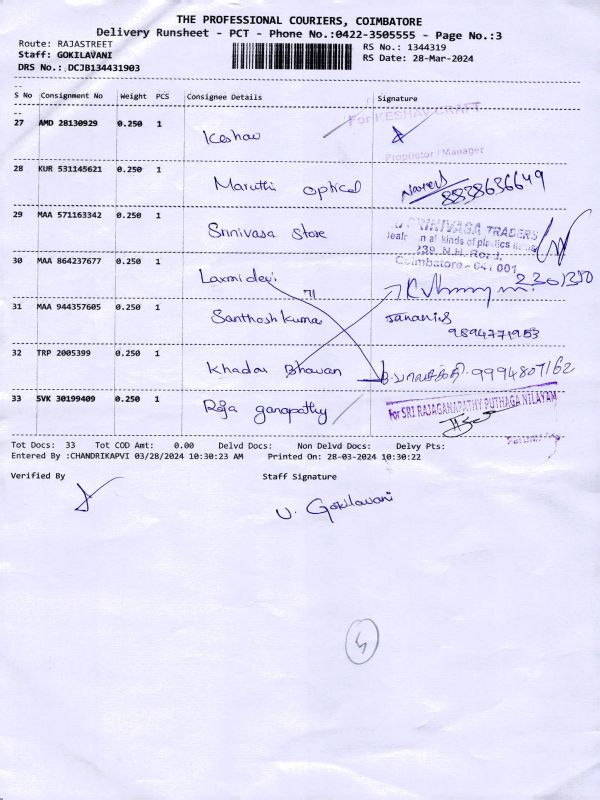 THE PROFESSIONAL COURIERS, COIMBATORE
Delivery Runsheet - PCT - Phone No.:0422-3505555 - Page No.:3
Route: RAJASTREET
RS No.: 1344319
Staff: GOKILAVANI
RS Date: 28-Mar-2024
DRS No.: DCJB134431903
S No Consignment No Weight PCS Consignee Details Signature
27 AMD 28130929 0.250 1 Keshav For KESHAV CRAFT
Proprietor / Manager
28 KUR 531145621 0.250 1 Maruthi optical 8838636649
29 MAA 571163342 0.250 1 Srinivasa Store SRINIVASA TRADERS
in all kinds of plastics
239, N.H. Road,
Coimbatore - 641 001
30 MAA 864237677 0.250 1 Laxmi devi 2301350
31 MAA 944357605 0.250 1 Santhosh kumar Janani.S
9894771953
32 TRP 2005399 0.250 1 Khadar Bhavan 9994807162
33 SVK 30199409 0.250 1 Raja ganapathy For SRI RAJAGANAPATHY PUTHAGA NILAYAM
Tot Docs: 33 Tot COD Amt: 0.00 Delvd Docs: Non Delvd Docs: Delvy Pts:
Entered By :CHANDRIKAPVI 03/28/2024 10:30:23 AM Printed On: 28-03-2024 10:30:22
Verified By Staff Signature
V. Gokilavani
5